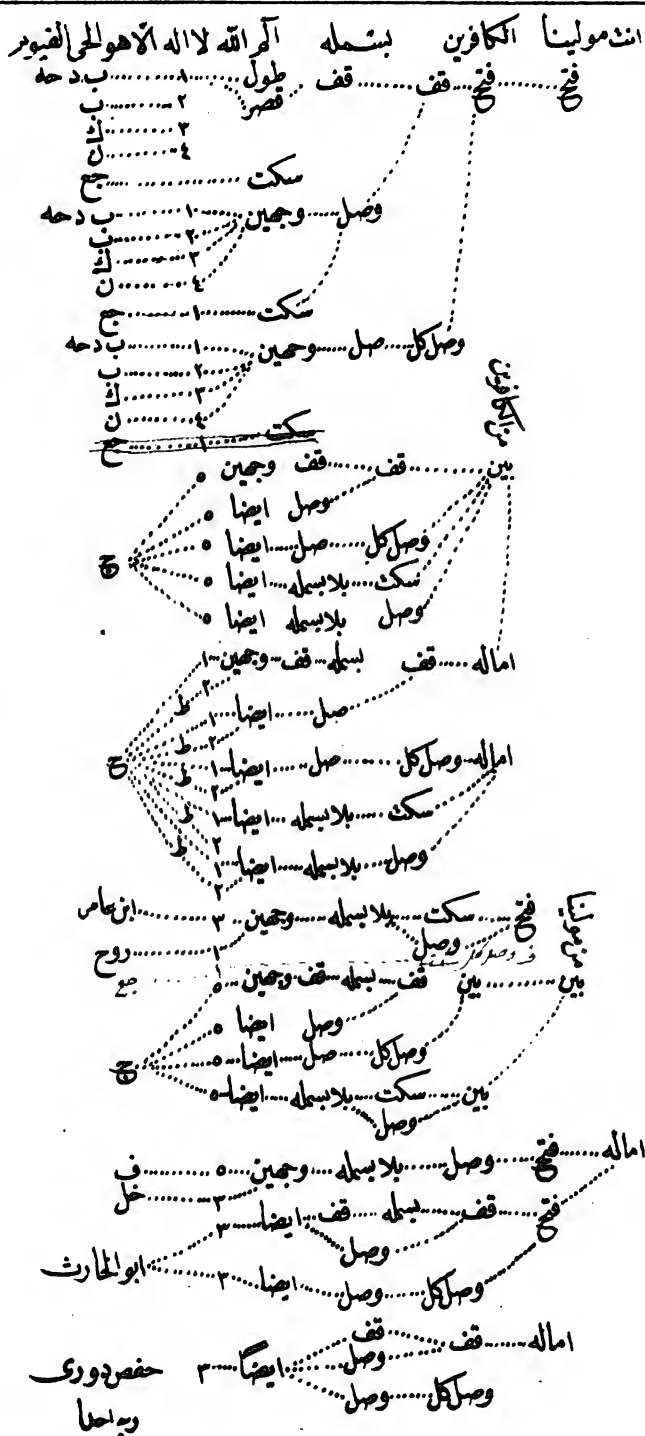 انت مولينا الكافرين بسمله الم الله لا اله الا هو الحى القيوم
فتح فتح قف قف طول ١ ب د حه
قصر ٢ ب
٣ ك
٤ ن
سكت جع
وصل وجهين ١ ب د حه
٢ ب
٣ ك
٤ ن
سكت ١ جع
وصل كل صل وجهين ١ ب د حه
٢ ب
٣ ك
٤ ن
سكت ١ جع
من الكافرين
بين قف قف وجهين ٥
وصل ايضا ٥
وصل كل صل ايضا ٥ ج
سكت بلا بسمله ايضا ٥
وصل بلا بسمله ايضا ٥
اماله قف بسمله قف وجهين ١
٢ ط
صل ايضا ١
٢ ط
اماله وصل كل صل ايضا ١ ح
٢ ط
سكت بلا بسمله ايضا ١
٢ ط
وصل بلا بسمله ايضا ١
٢ ط
من مولينا
فتح سكت بلا بسمله وجهين ٣ ابن عامر
وصل ١ روح
جع
بين بين قف بسمله قف وجهين ٥
وصل ايضا ٥
وصل كل صل ايضا ٥ ج
بين سكت بلا بسمله ايضا ٥
وصل
اماله فتح وصل بلا بسمله وجهين ٥ ف
٣ خل
فتح قف بسمله قف ايضا ٣
وصل ابو الحارث
وصل كل وصل ايضا ٣
اماله قف قف
وصل ايضا ٣ حفص دورى
وصل كل وصل